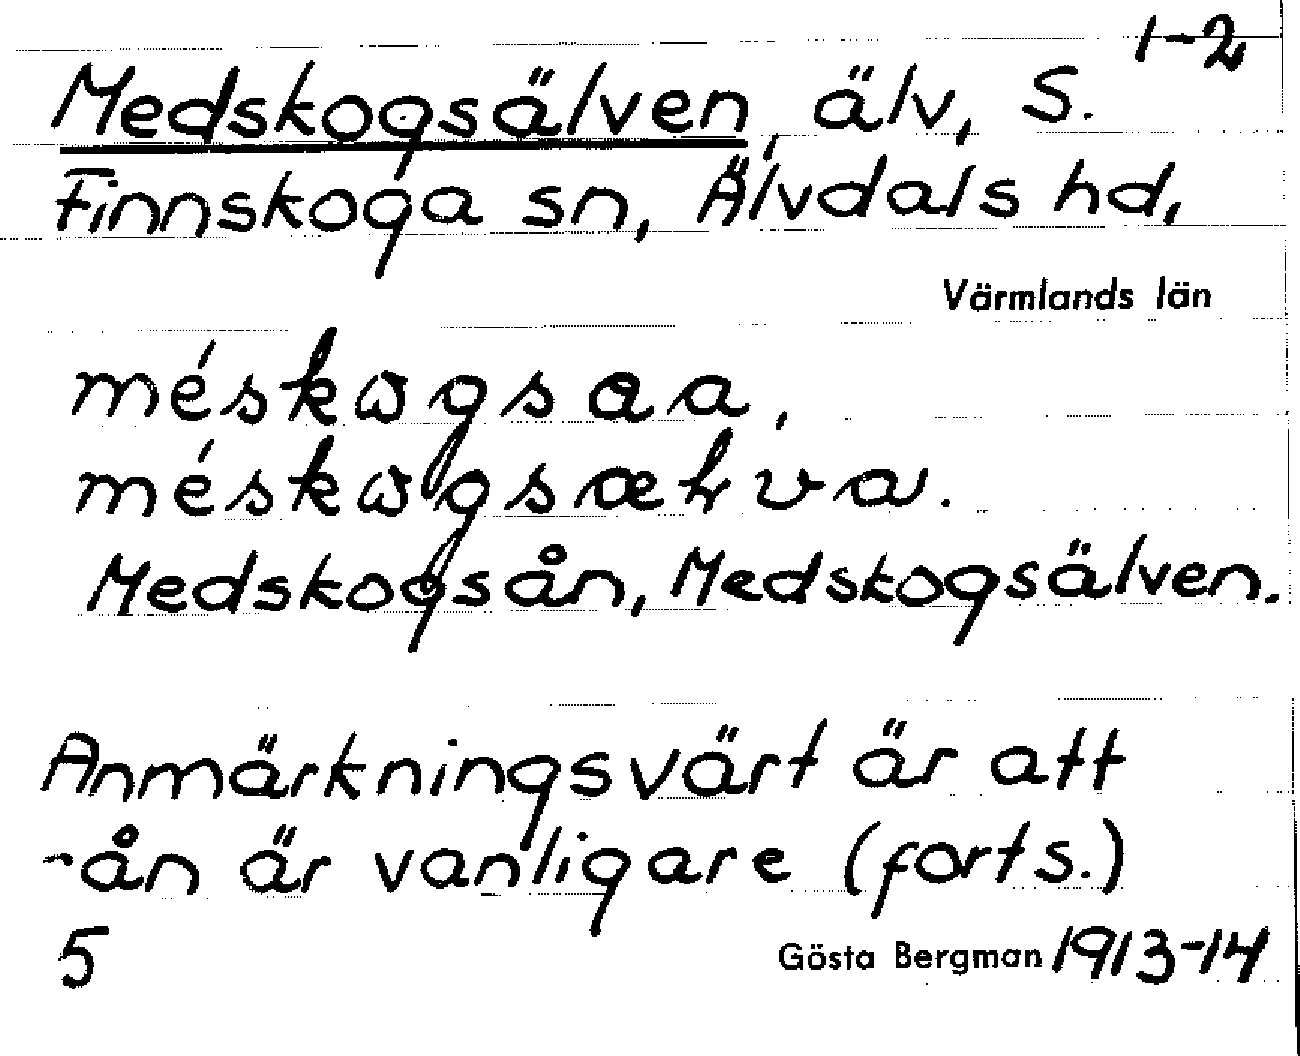 1-2
Medskogsälven, älv, S.
Finnskoga sn, Älvdals hd,
Värmlands län
Medskogsån, Medskogsälven.
Anmärkningsvärt är att
-ån är vanligare (forts.)
5
Gösta Bergman 1913-14